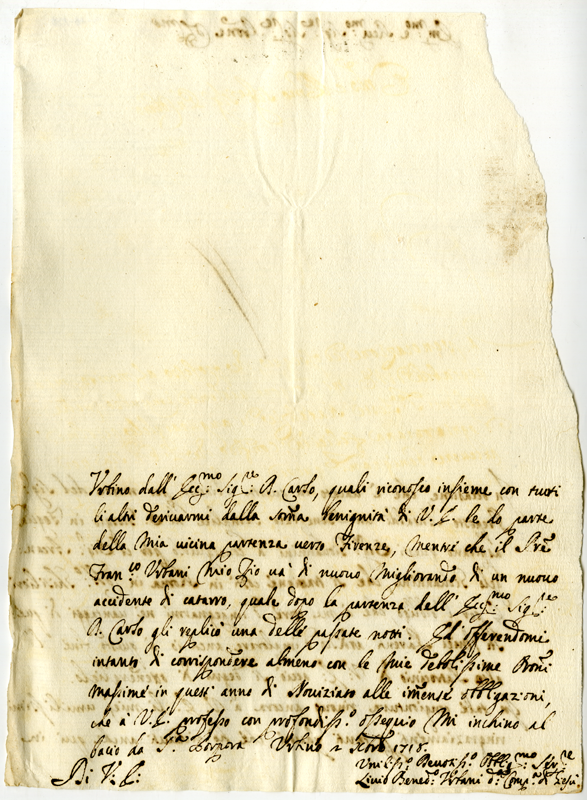 Urbino dall' Ecc:mo Sig:re D. Carlo, quali riconosco insieme con tutti
li altri derivarmi dalla somma benignità di V. E. le do parte
della mia vicina partenza verso Firenze, mentre che il
Fran:co Urbani mio Zio và di nuovo migliorando di un nuovo
accidente di catarro, quale dopo la partenza dell' Ecc:mo Sig:re
D. Carlo gli replicò una delle passate notti. Ed offerendomi
intanto di corrispondere almeno con le mie debolissime
massime in questi anno di Noviziato alle immense obbligazioni,
che à V. E. professo con profondiss:o ossequio mi inchino al
bacio da S:a Porpora Urbino 2 1718.
Di V. E:
Umiliss:o Devotiss:o Obblig:mo Ser:re
Livio Bened:o Urbani d:a Comp:a di Giesù